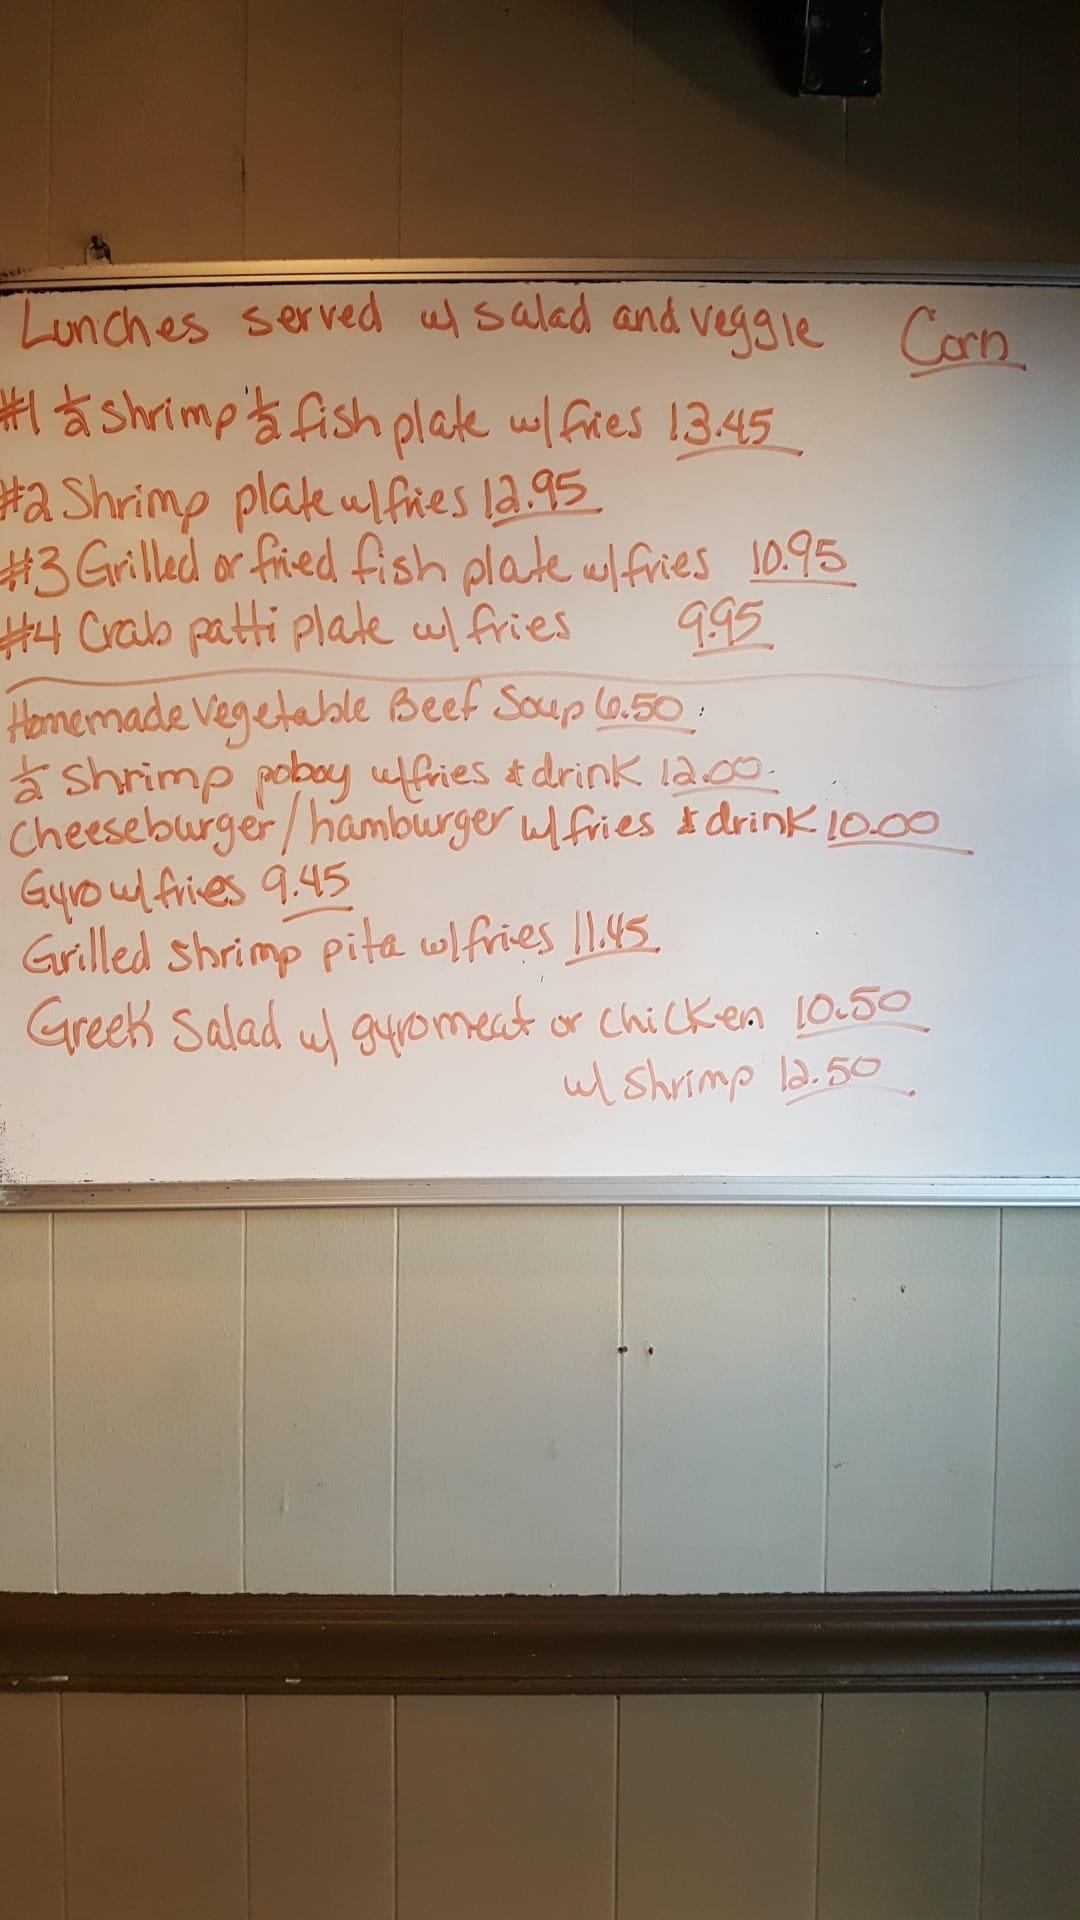 Lunches served w/ salad and veggie Corn
#1 ½ shrimp ½ fish plate w/ fries 13.45
#2 Shrimp plate w/ fries 12.95
#3 Grilled or fried fish plate w/ fries 10.95
#4 Crab patti plate w/ fries 9.95
Homemade Vegetable Beef Soup 6.50
½ Shrimp poboy w/ fries & drink 12.00
Cheeseburger/hamburger w/ fries & drink 10.00
Gyro w/ fries 9.45
Grilled shrimp pita w/ fries 11.45
Greek Salad w/ gyromeat or chicken 10.50
w/ Shrimp 12.50